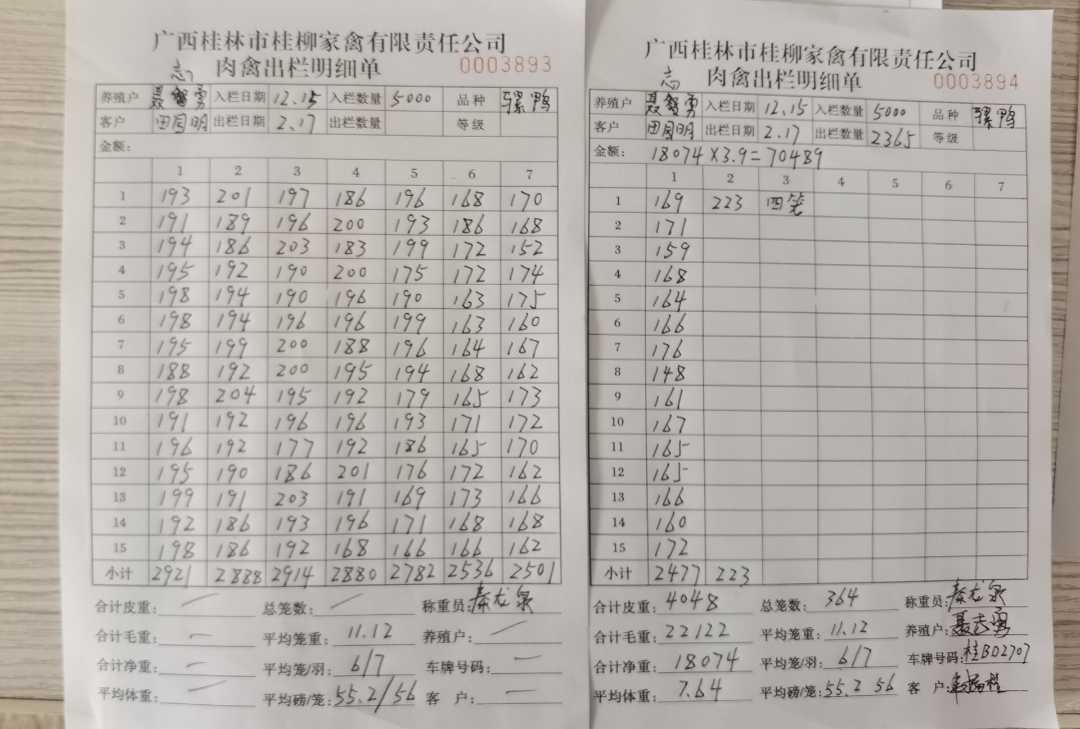 广西桂林市桂柳家禽有限责任公司
肉禽出栏明细单 0003893
志
养殖户 聂智勇 入栏日期 12.15 入栏数量 5000 品种 骡鸭
客户 田周明 出栏日期 2.17 出栏数量 等级
金额:
1 2 3 4 5 6 7
1 193 201 197 186 196 168 170
2 191 189 196 200 193 186 168
3 194 186 203 183 199 172 152
4 195 192 190 200 175 172 174
5 198 194 190 196 190 163 175
6 198 194 196 196 199 163 160
7 195 199 200 188 196 164 167
8 188 192 200 195 194 168 162
9 198 204 195 192 179 165 173
10 191 192 196 196 193 171 172
11 196 192 177 192 186 165 170
12 195 190 186 201 176 172 162
13 199 191 203 191 169 173 166
14 192 186 193 196 171 168 168
15 198 186 192 168 166 166 162
小计 2921 2888 2914 2880 2782 2536 2501
合计皮重: 总笼数: 称重员: 秦龙泉
合计毛重: 平均笼重: 11.12 养殖户:
合计净重: 平均笼/羽: 6/7 车牌号码:
平均体重: 平均磅/笼: 55.2/56 客 户:
广西桂林市桂柳家禽有限责任公司
肉禽出栏明细单 0003894
志
养殖户 聂智勇 入栏日期 12.15 入栏数量 5000 品种 骡鸭
客户 田周明 出栏日期 2.17 出栏数量 2365 等级
金额: 18074×3.9=70489
1 2 3 4 5 6 7
1 169 223 四笼
2 171
3 159
4 168
5 164
6 166
7 176
8 148
9 161
10 167
11 165
12 165
13 166
14 160
15 172
小计 2477 223
合计皮重: 4048 总笼数: 364 称重员: 秦龙泉
合计毛重: 22122 平均笼重: 11.12 养殖户: 聂志勇
合计净重: 18074 平均笼/羽: 6/7 车牌号码: 桂B02707
平均体重: 7.64 平均磅/笼: 55.2 56 客 户: